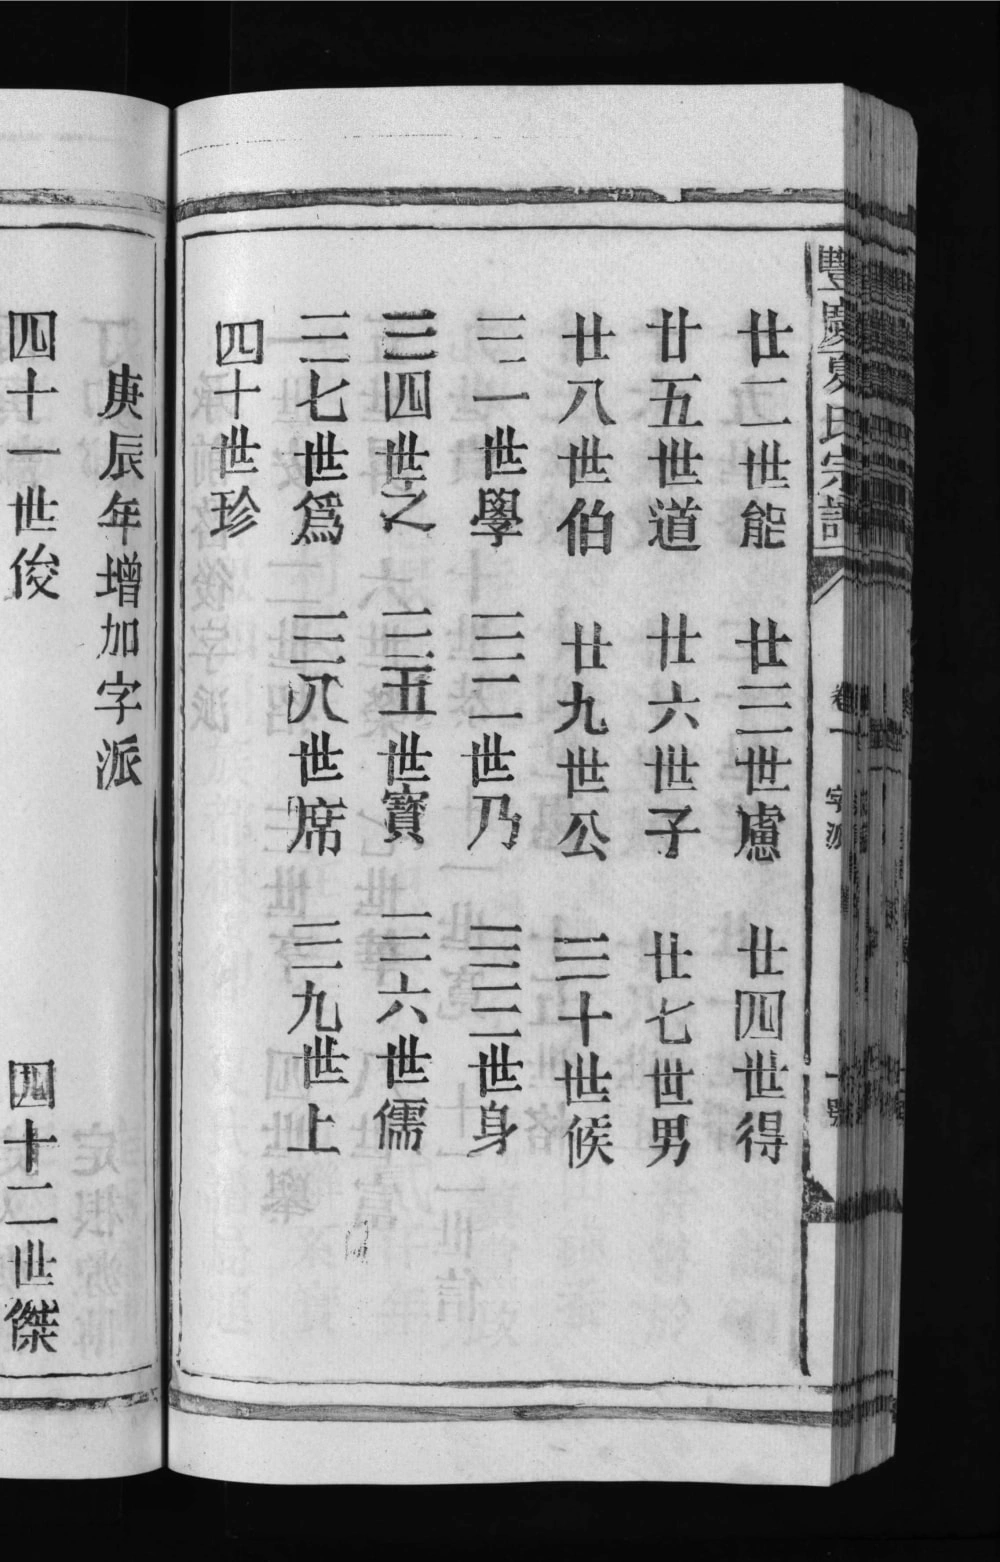 廿二世能　廿三世慮　廿四世得
廿五世道　廿六世子　廿七世男
廿八世伯　廿九世公　三十世候
三一世學　三二世乃　三三世身
三四世之　三五世寶　三六世儒
三七世爲　三八世席　三九世上
四十世珍
庚辰年增加字派
四十一世俊　四十二世傑
卷一　字派